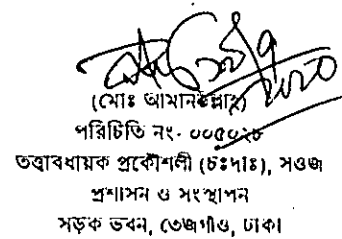 (মোঃ আমানউল্লাহ)
পরিচিতি নং- ০০৫০২৮
তত্ত্বাবধায়ক প্রকৌশলী (চঃদাঃ), সওজ
প্রশাসন ও সংস্থাপন
সড়ক ভবন, তেজগাঁও, ঢাকা